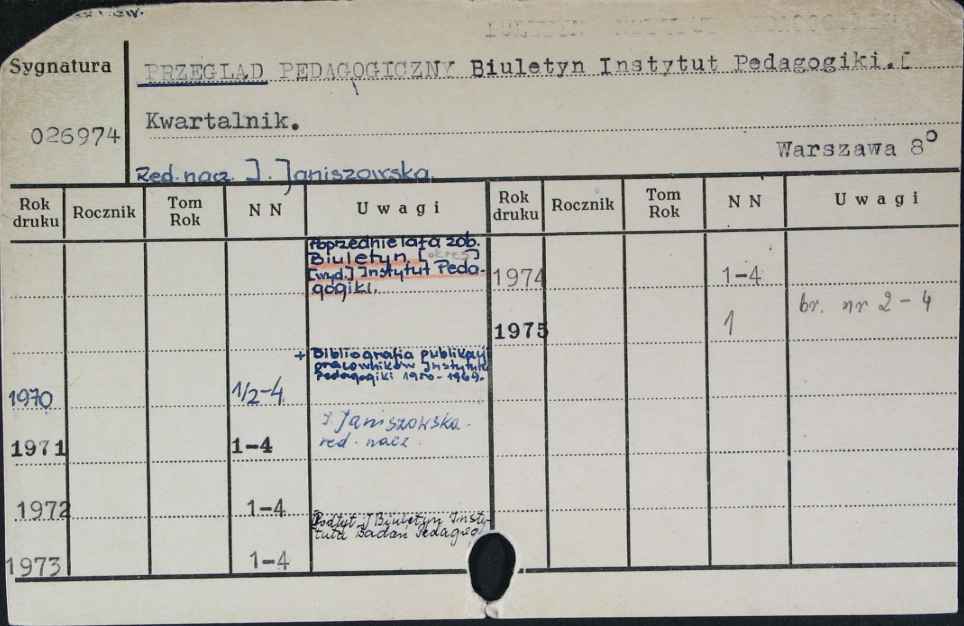 Sygnatura
PRZEGLĄD PEDAGOGICZNY Biuletyn Instytut Pedagogiki. [
026974
Kwartalnik.
Warszawa 8°
Red. nacz. J. Janiszowska.
Rok druku Rocznik Tom Rok N N Uwagi Rok druku Rocznik Tom Rok N N Uwagi
Poprzednie lata zob.
Biuletyn [okres]
[wyd.] Instytut Peda-
gogiki.
1974 1-4
1975 1 br. nr 2-4
+ Bibliografia publikacji
pracowników Instytutu
Pedagogiki 1950-1969.
1970 1/2-4
J. Janiszowska-
red. nacz.
1971 1-4
1972 1-4
Podtyt. Biuletyn Insty-
tutu Badań Pedagog
1973 1-4